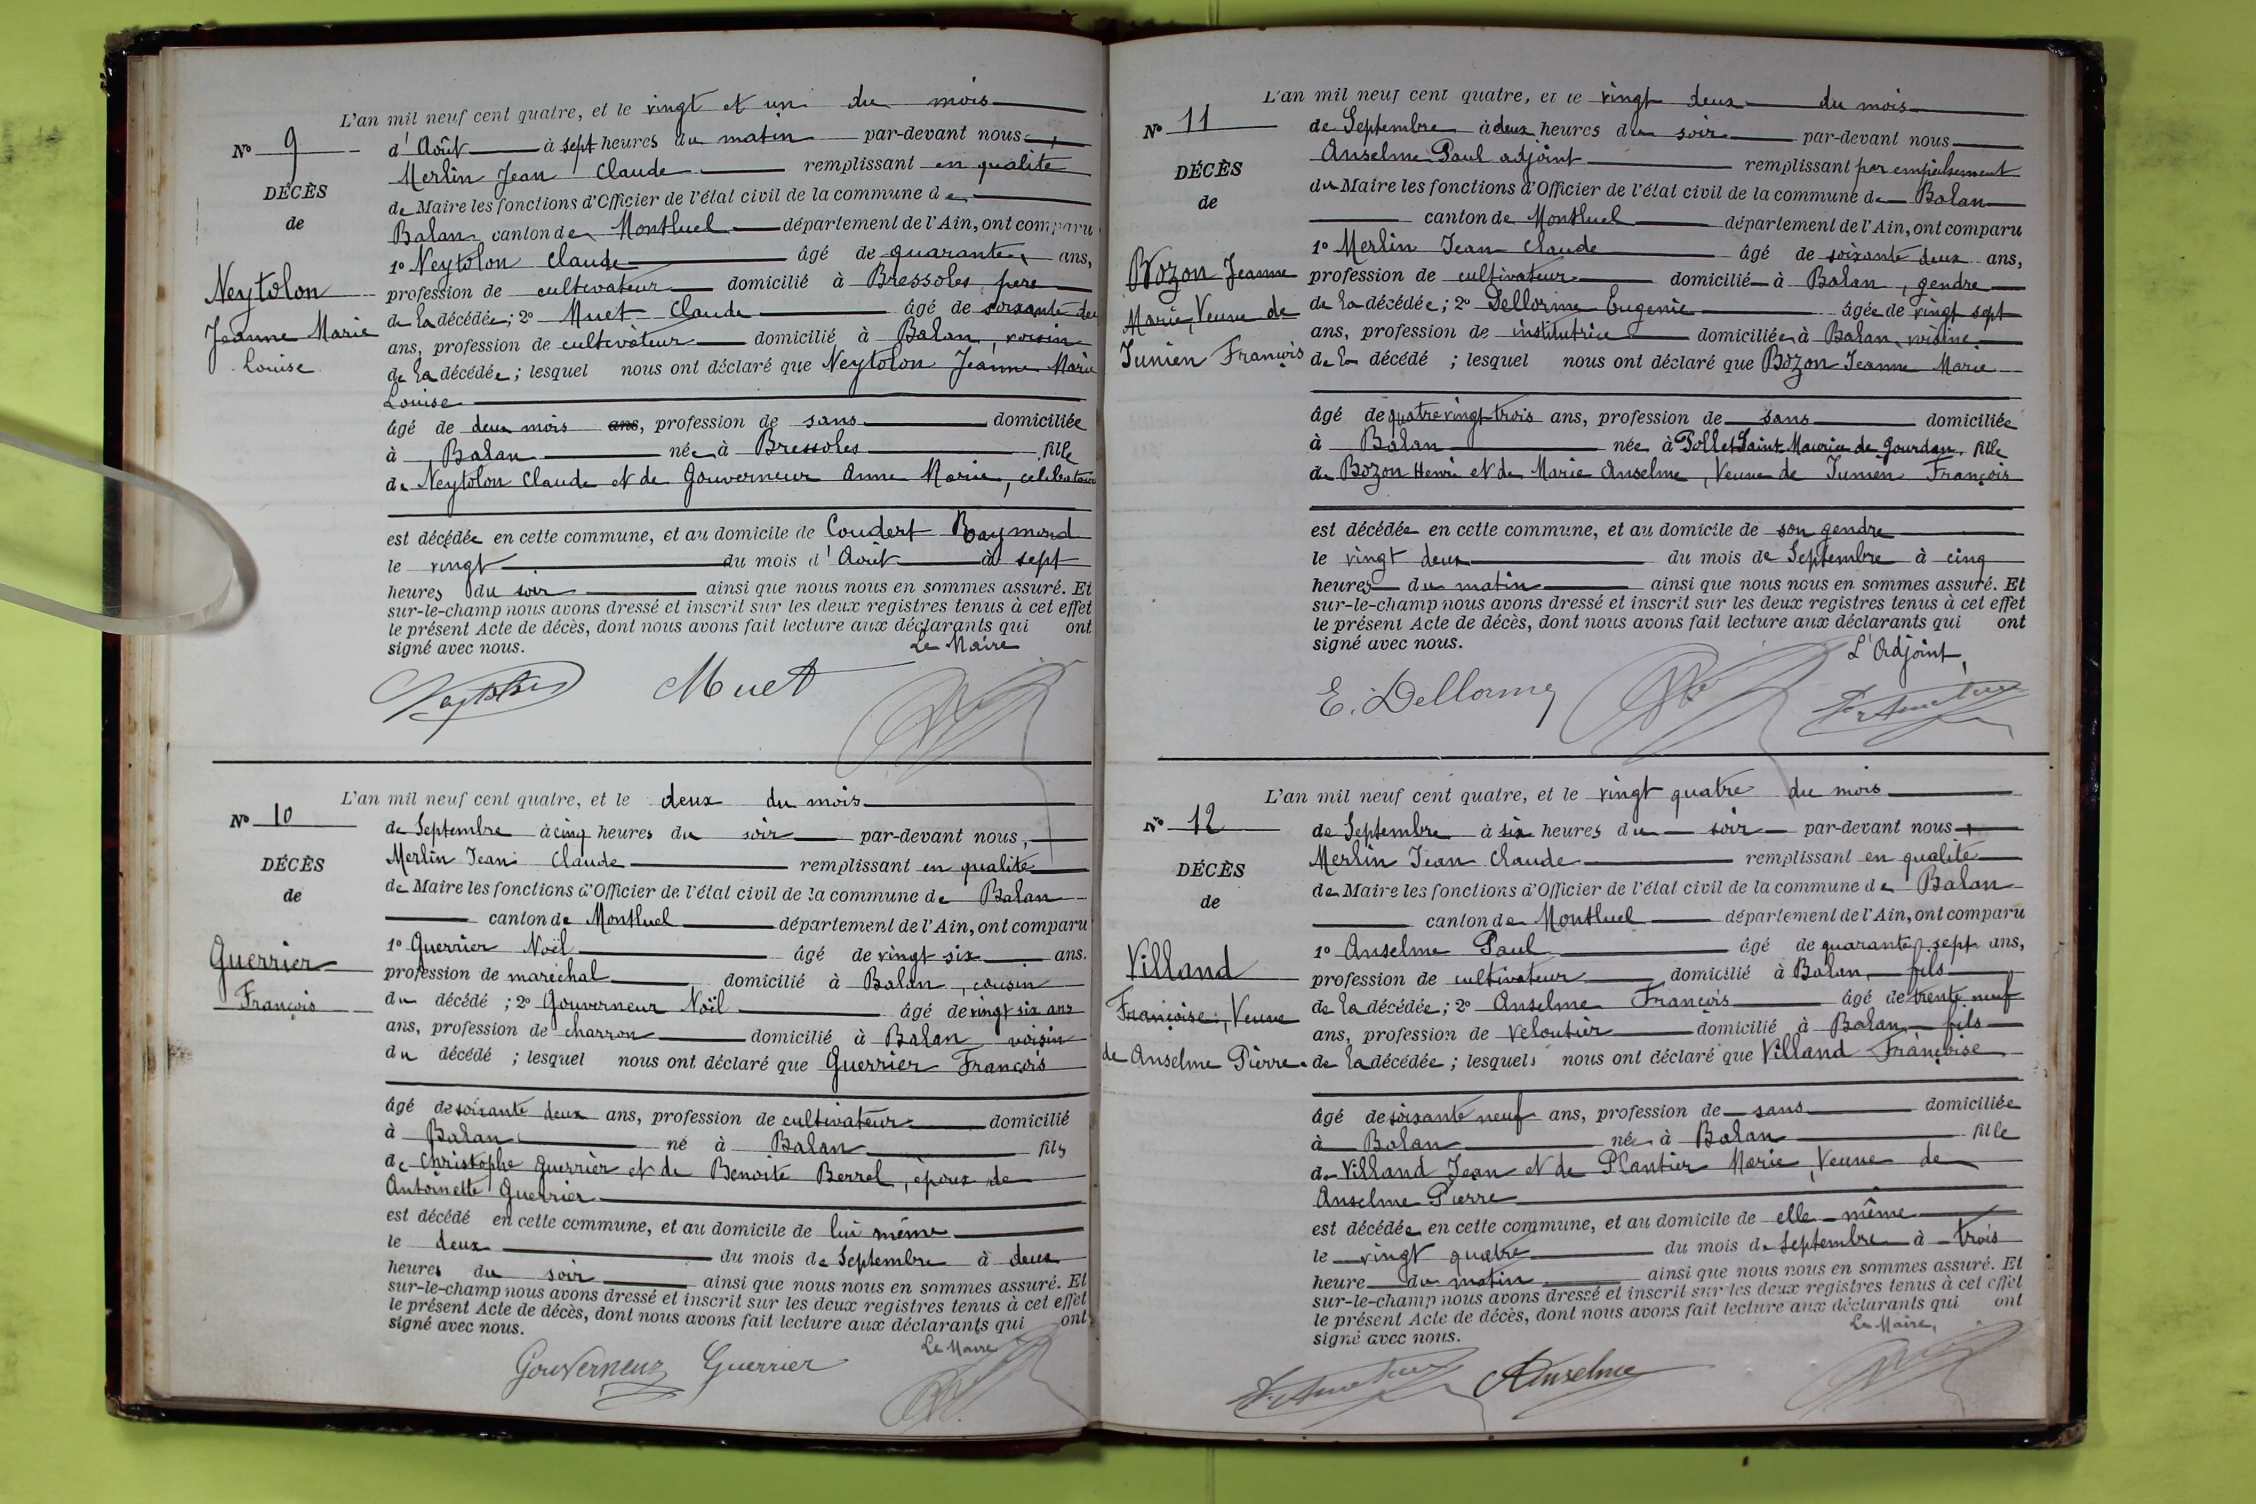 N° 9
DÉCÈS
de
Neytolon
Jeanne Marie
Louise
L'an mil neuf cent quatre, et le vingt et un du mois
d'Août à sept heures du matin par-devant nous,
Merlin Jean Claude remplissant en qualité
de Maire les fonctions d'Officier de l'état civil de la commune de
Balan canton de Montluel département de l'Ain, ont comparu
1° Neytolon Claude âgé de quarante ans,
profession de cultivateur domicilié à Bressoles père
de la décédée ; 2° Muet Claude âgé de soixante de
ans, profession de cultivateur domicilié à Balan, voisin
de la décédée ; lesquel nous ont déclaré que Neytolon Jeanne Marie
Louise
âgé de deux mois ans, profession de sans domiciliée
à Balan née à Bressoles fille
de Neytolon Claude et de Gouverneur Anne Marie, célibataire
est décédée en cette commune, et au domicile de Coudert Raymond
le vingt du mois d'Août à sept
heures du soir ainsi que nous nous en sommes assuré. Et
sur-le-champ nous avons dressé et inscrit sur les deux registres tenus à cet effet
le présent Acte de décès, dont nous avons fait lecture aux déclarants qui ont
signé avec nous. Le Maire
Neytolon Muet
N° 10
DÉCÈS
de
Guerrier
François
L'an mil neuf cent quatre, et le deux du mois
de Septembre à cinq heures du soir par-devant nous,
Merlin Jean Claude remplissant en qualité
de Maire les fonctions d'Officier de l'état civil de la commune de Balan
canton de Montluel département de l'Ain, ont comparu
1° Guerrier Noël âgé de vingt six ans.
profession de maréchal domicilié à Balan, cousin
du décédé ; 2° Gouverneur Noël âgé de vingt six ans
ans, profession de charron domicilié à Balan voisin
du décédé ; lesquel nous ont déclaré que Guerrier François
âgé de soixante deux ans, profession de cultivateur domicilié
à Balan né à Balan fils
de Christophe Guerrier et de Benoite Berrel, époux de
Antoinette Guerrier
est décédé en cette commune, et au domicile de lui même
le deux du mois de Septembre à deux
heures du soir ainsi que nous nous en sommes assuré. Et
sur-le-champ nous avons dressé et inscrit sur les deux registres tenus à cet effet
le présent Acte de décès, dont nous avons fait lecture aux déclarants qui ont
signé avec nous. Le Maire
Gouverneur Guerrier
N° 11
DÉCÈS
de
Bozon Jeanne
Marie, Veuve de
Junien François
L'an mil neuf cent quatre, et le vingt deux du mois
de Septembre à deux heures du soir par-devant nous
Anselme Paul adjoint remplissant par empêchement
du Maire les fonctions d'Officier de l'état civil de la commune de Balan
canton de Montluel département de l'Ain, ont comparu
1° Merlin Jean Claude âgé de soixante deux ans,
profession de cultivateur domicilié à Balan, gendre
de la décédée ; 2° Dellorme Eugenie âgée de vingt sept
ans, profession de institutrice domiciliée à Balan, voisine
de la décédé ; lesquel nous ont déclaré que Bozon Jeanne Marie
âgé de quatre vingt trois ans, profession de sans domiciliée
à Balan née à Pollet Saint Maurice de Gourdan, fille
de Bozon Henri et de Marie Anselme, Veuve de Junien François
est décédée en cette commune, et au domicile de son gendre
le vingt deux du mois de Septembre à cinq
heures du matin ainsi que nous nous en sommes assuré. Et
sur-le-champ nous avons dressé et inscrit sur les deux registres tenus à cet effet
le présent Acte de décès, dont nous avons fait lecture aux déclarants qui ont
signé avec nous. L'Adjoint,
E. Dellorme
N° 12
DÉCÈS
de
Villand
Françoise, Veuve
de Anselme Pierre.
L'an mil neuf cent quatre, et le vingt quatre du mois
de Septembre à six heures du soir par-devant nous,
Merlin Jean Claude remplissant en qualité
de Maire les fonctions d'Officier de l'état civil de la commune de Balan
canton de Montluel département de l'Ain, ont comparu
1° Anselme Paul âgé de quarante sept ans,
profession de cultivateur domicilié à Balan, fils
de la décédée ; 2° Anselme François âgé de trente neuf
ans, profession de veloutier domicilié à Balan fils
de la décédée ; lesquels nous ont déclaré que Villand Françoise
âgé de soixante neuf ans, profession de sans domiciliée
à Balan née à Balan fille
de Villand Jean et de Plantier Marie, Veuve de
Anselme Pierre
est décédée en cette commune, et au domicile de elle-même
le vingt quatre du mois de Septembre à trois
heure du matin ainsi que nous nous en sommes assuré. Et
sur-le-champ nous avons dressé et inscrit sur les deux registres tenus à cet effet
le présent Acte de décès, dont nous avons fait lecture aux déclarants qui ont
signé avec nous. Le Maire,
Anselme